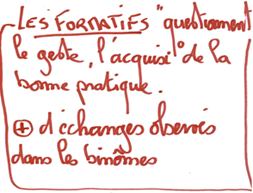 LES FORMATIFS "questionnent
le geste, l'acquisi° de la
bonne pratique.
⊕ d'échanges observés
dans les binômes